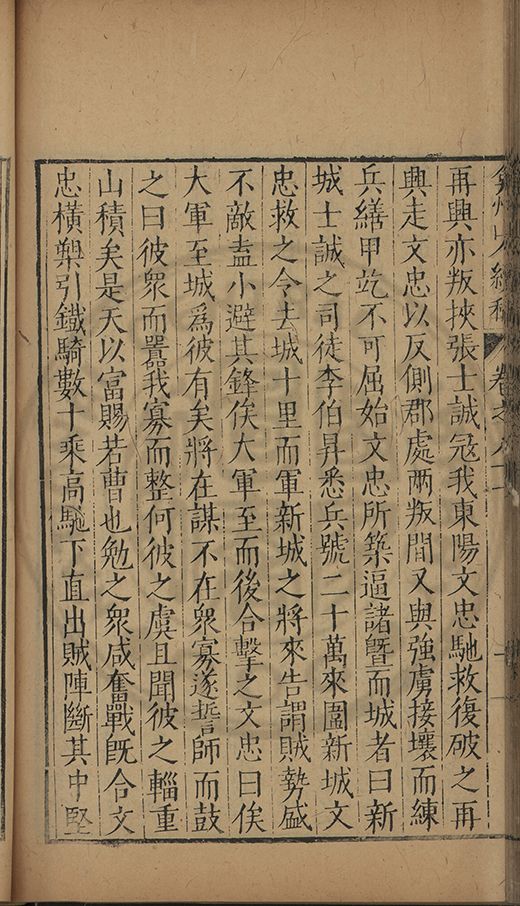 弇州山人續稿 卷之八十一
再興亦叛挾張士誠冦我東陽文忠馳救復破之再
興走文忠以反側郡處兩叛間又與強虜接壤而練
兵繕甲屹不可屈始文忠所築逼諸曁而城者曰新
城士誠之司徒李伯昇悉兵號二十萬來圍新城文
忠救之令去城十里而軍新城之將來告謂賊勢盛
不敵盍小避其鋒俟大軍至而後合擊之文忠曰俟
大軍至城爲彼有矣將在謀不在衆寡遂誓師而鼓
之曰彼衆而囂我寡而整何彼之虞且聞彼之輜重
山積矣是天以富賜若曹也勉之衆咸奮戰旣合文
忠橫槊引鐵騎數十乘高馳下直出賊陣斷其中堅